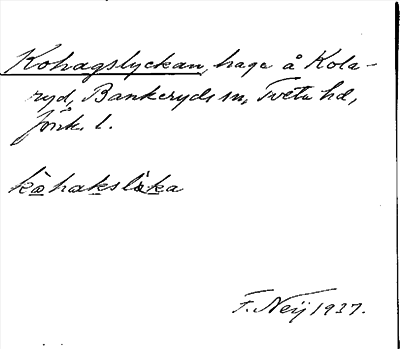 Kohagslyckan, hage å Kola-
ryd, Bankeryds sn, Tveta hd,
Jönk. l.
kohakslẙka
F. Neij 1937.